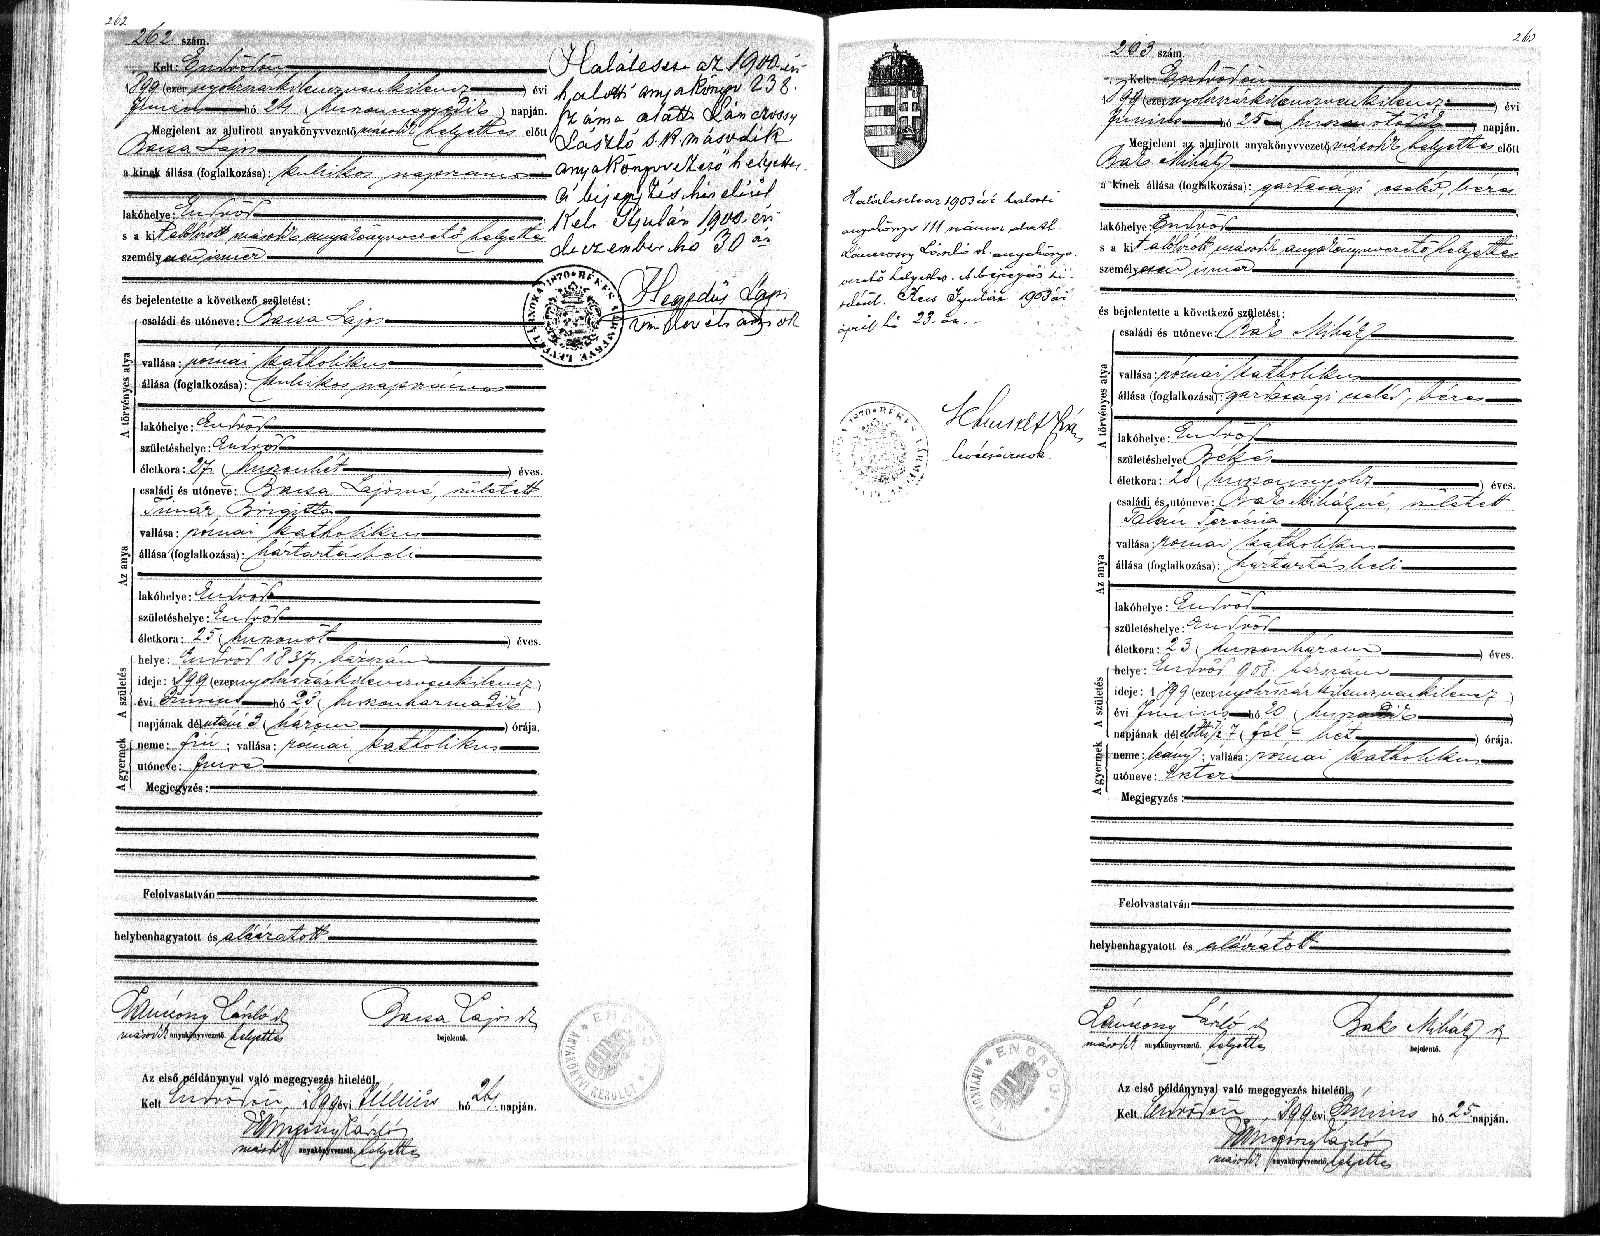 262
262 szám.
Kelt: Endrődön,
1899 (ezernyolczszázkilenczvenkilencz) évi
Junius hó 24 (huszonnegyedik) napján.
Megjelent az alulirott anyakönyvvezető második helyettes előtt
Barsa Lajos
a kinek állása (foglalkozása): kubikos napszámos
lakóhelye: Endrőd
s a kit alólirott második anyakönyvvezető helyettes
személyesen ismer
és bejelentette a következő születést:
A törvényes atya
családi és utóneve: Barsa Lajos
vallása: római katholikus
állása (foglalkozása): kubikos napszámos
lakóhelye: Endrőd
születéshelye: Endrőd
életkora: 27 (huszonhét) éves.
Az anya
családi és utóneve: Barsa Lajosné, született
Timár Brigitta
vallása: római katholikus
állása (foglalkozása): háztartásbeli
lakóhelye: Endrőd
születéshelye: Endrőd
életkora: 25 (huszonöt) éves.
A születés
helye: Endrőd 1837. házszám
ideje: 1899 (ezernyolczszázkilenczvenkilencz)
évi Junius hó 23 (huszonharmadik)
napjának délutáni 3 (három) órája.
A gyermek
neme: fiú; vallása: római katholikus
utóneve: Imre
Megjegyzés:
Felolvastatván
helybenhagyatott és aláíratott
Lánczossy László sk
második anyakönyvvezető helyettes
Barsa Lajos sk
bejelentő.
Az első példánynyal való megegyezés hiteléül.
Kelt Endrődön, 1899 évi Június hó 24 napján.
Lánczossy László
második anyakönyvvezető helyettes
Halálesete az 1900 évi
halotti anyakönyv 238.
száma alatt Lánczossy
László s.k. második
anyakönyvvezető helyettes.
A bejegyzés hiteléül
Kelt Gyulán 1900 évi
deczember hó 30 án
Hegedűs Lajos
vm. levéltárnok
263
263 szám
Kelt: Endrődön
1899 (ezernyolczszázkilenczvenkilencz) évi
Junius hó 25 (huszonötödik) napján.
Megjelent az alulirott anyakönyvvezető második helyettes előtt
Bako Mihály
a kinek állása (foglalkozása): gazdasági cseléd, béres
lakóhelye: Endrőd
s a kit alólirott második anyakönyvvezető helyettes
személyesen ismer
és bejelentette a következő születést:
A törvényes atya
családi és utóneve: Bako Mihály
vallása: római katholikus
állása (foglalkozása): gazdasági cseléd, béres
lakóhelye: Endrőd
születéshelye: Békés
életkora: 28 (huszonnyolcz) éves.
Az anya
családi és utóneve: Bako Mihályné, született
Terézia
vallása: római katholikus
állása (foglalkozása): háztartásbeli
lakóhelye: Endrőd
születéshelye: Endrőd
életkora: 23 (huszonhárom) éves.
A születés
helye: Endrőd 908. házszám
ideje: 1899 (ezernyolczszázkilenczvenkilencz)
évi Junius hó 20 (huszadik)
napjának délelőtti ½ 7 (fél hét) órája.
A gyermek
neme: leány; vallása: római katholikus
utóneve: Eszter
Megjegyzés:
Felolvastatván
helybenhagyatott és aláíratott
Lánczossy László sk
második anyakönyvvezető helyettes
Bako Mihály sk
bejelentő.
Az első példánynyal való megegyezés hiteléül.
Kelt Endrődön, 1899 évi Június hó 25 napján.
Lánczossy László
második anyakönyvvezető helyettes
Halálesete az 1903 évi halotti
anyakönyv 111 száma alatt
Lánczossy László sk. anyakönyv-
vezető helyettes. A bejegyzés hi-
teléül. Kelt Gyulán 1903 évi
április hó 23. án.
levéltárnok.